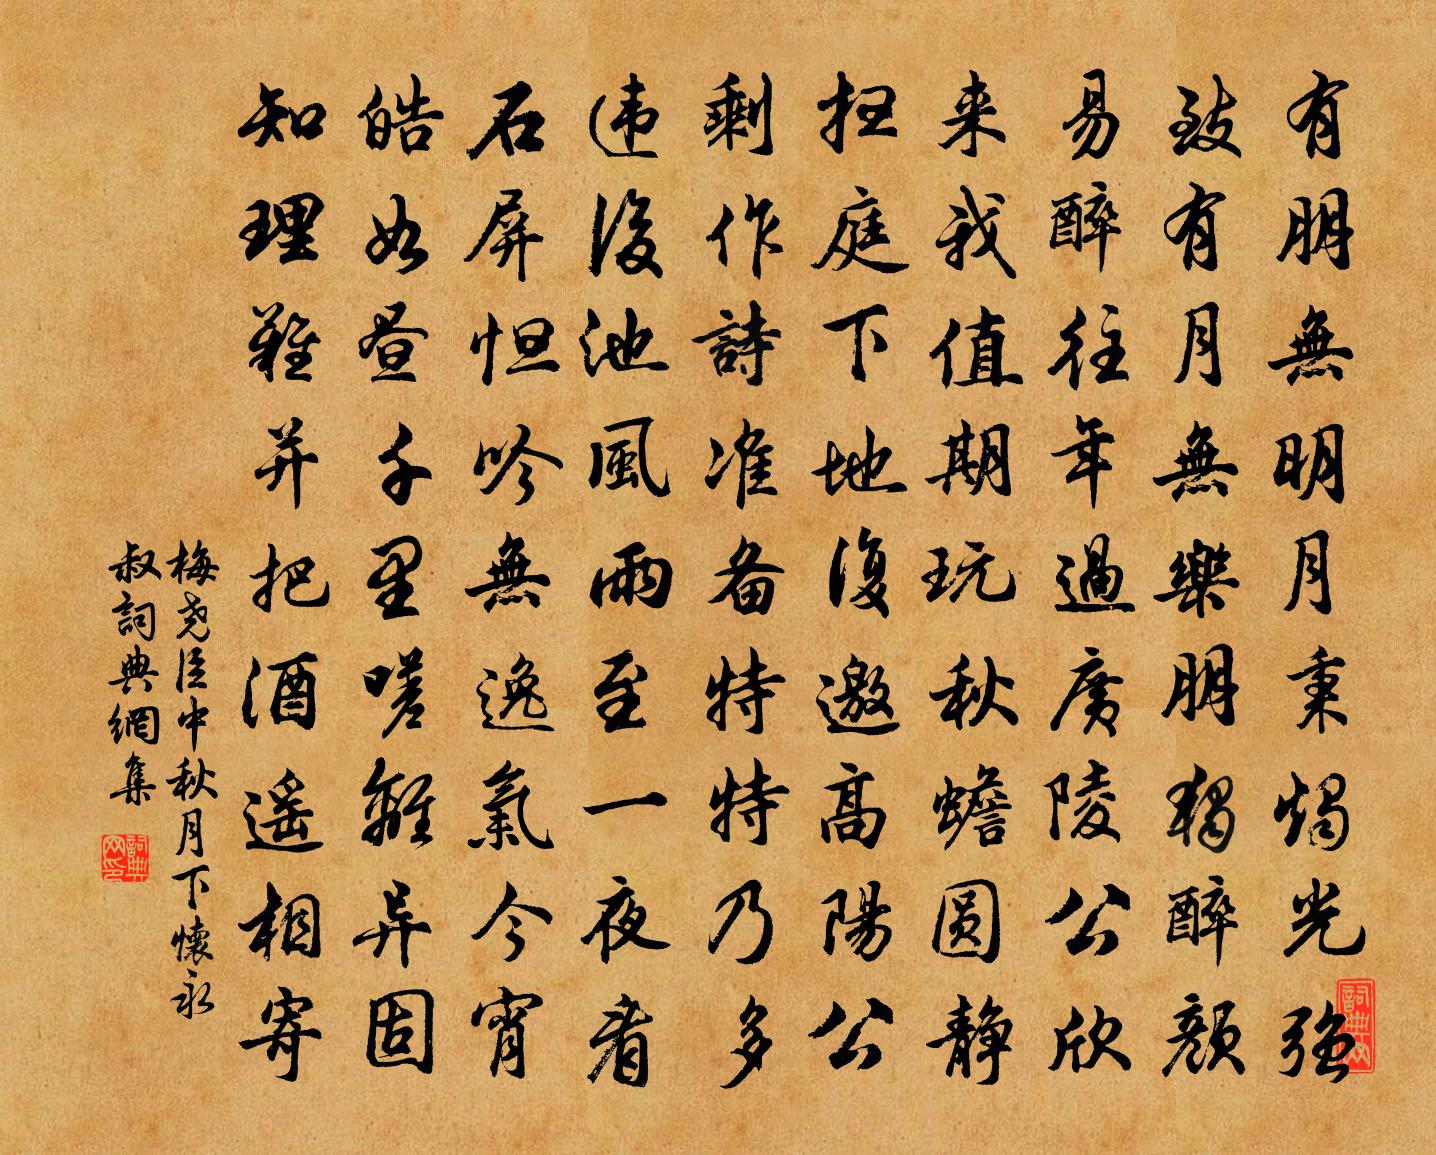 有朋無明月秉燭光強
致有月無樂朋獨醉顏
易醉往年過廣陵公欣
来我值期玩秋蟾圆靜
扫庭下地復邀高陽公
剩作詩准备特特乃多
违後池風雨至一夜看
石屏怛吟無逸氣今宵
皓如昼千里嗟離异固
知理難并把酒遥相寄
梅尧臣中秋月下懷永
叔詞典網集
詞典网
詞典网印